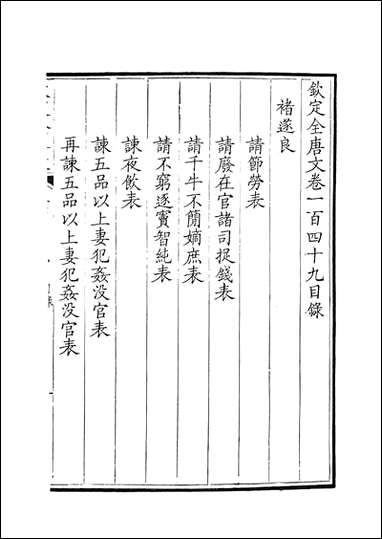 欽定全唐文卷一百四十九目錄
褚遂良
請節勞表
請廢在官諸司捉錢表
請千牛不簡嫡庶表
請不窮逐竇智純表
諫夜飲表
諫五品以上妻犯姦没官表
再諫五品以上妻犯姦没官表